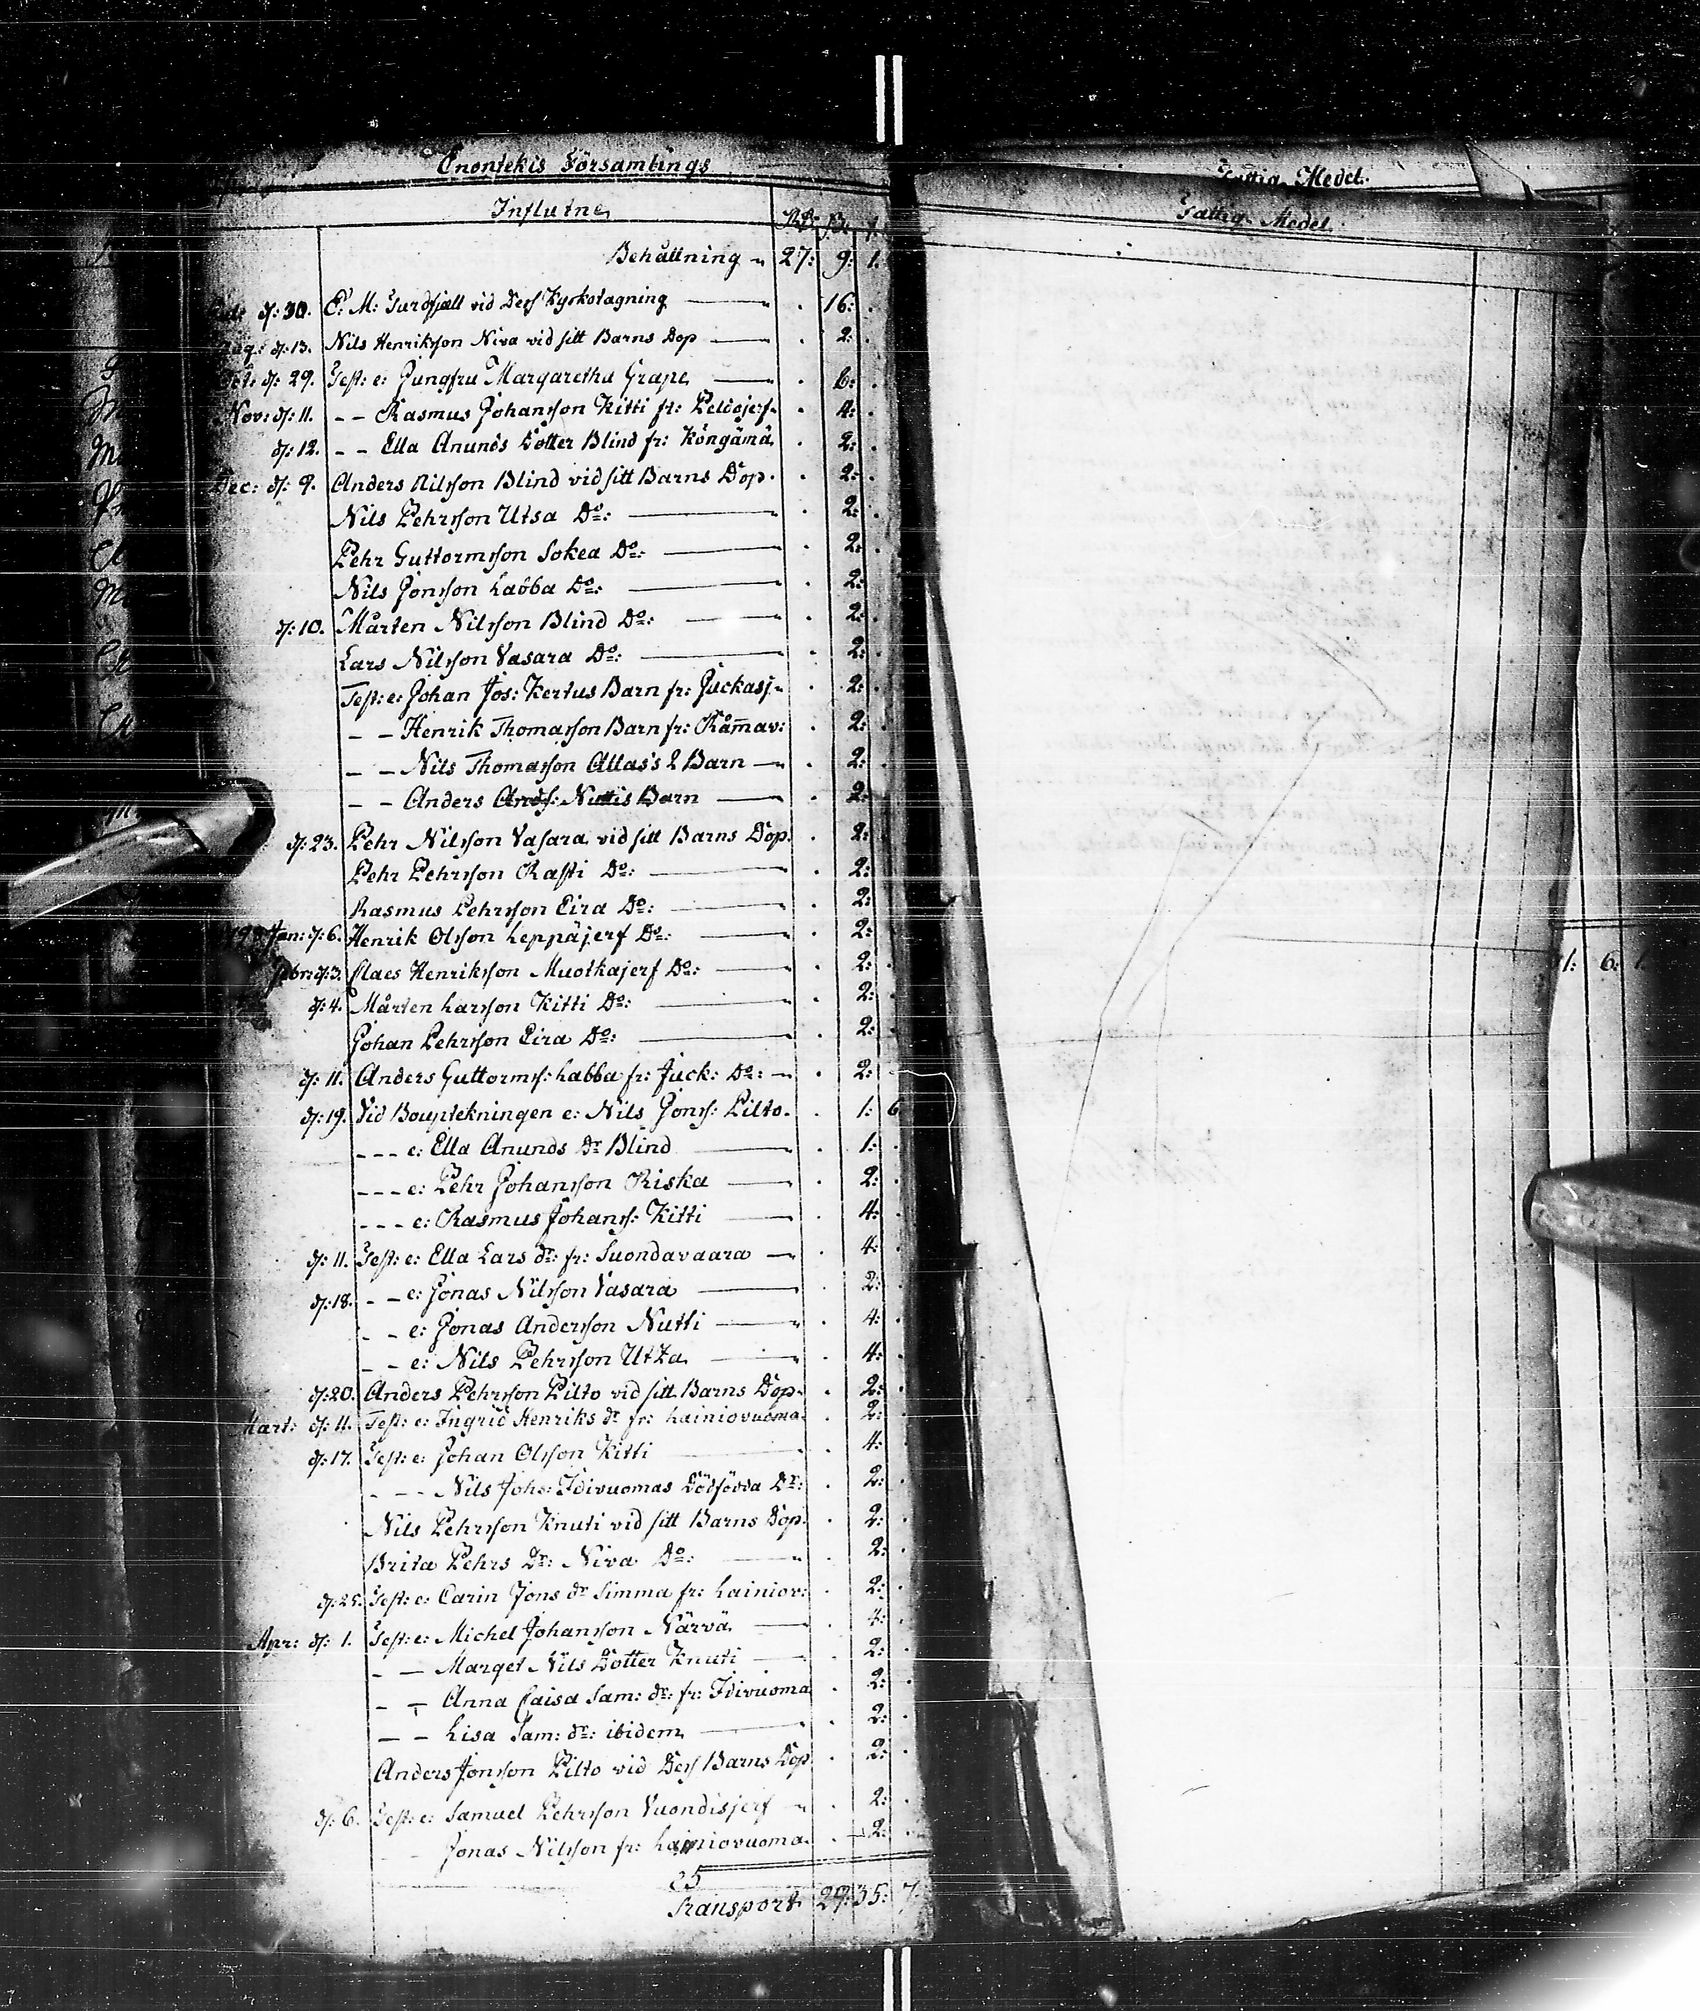 Enontekis Församlings
Influtne Rdr ß. r.
Behållning 27: 9: 1.
d: 30. E: M: Turdfjæll vid Dess Kyrkotagning 16:
Aug: d: 13. Nils Henriksson Niva vid sitt Barns Dop 2:
Oct: d: 29. Test: e: Jungfru Margaretha Grape 6:
Nov: d: 11. - - Rasmus Johansson Kitti fr: Peldojerf 4:
d: 12. - - Ella Anunds Dotter Blind fr: Köngämä 2:
Dec: d: 9. Anders Nilsson Blind vid sitt Barns Dop. 2:
Nils Pehrsson Utsa Do: 2:
Pehr Guttormsson Sokea Do: 2:
Nils Jonsson Labba Do: 2:
d: 10. Mårten Nilsson Blind Do: 2:
Lars Nilsson Vasara Do: 2:
Test: e: Johan Jos: Kertus Barn fr: Juckasj. 2:
- - Henrik Thomasson Barn fr: Råm̅av: 2:
- - Nils Thomasson Allas's 2 Barn 2:
- - Anders Ands: Nuttis Barn 2:
d: 23. Pehr Nilsson Vasara vid sitt Barns Dop. 2:
Pehr Pehrsson Rasti Do: 2:
Rasmus Pehrsson Eira Do: 2:
Jan: d: 6. Henrik Olsson Leppäjerf Do: 2:
Febr: d: 3. Claes Henriksson Muotkajerf Do: 2:
d: 4. Mårten Larsson Kitti Do: 2:
Johan Pehrsson Eira Do: 2:
d: 11. Anders Guttorms: Labba fr: Juck: Do: 2:
d: 19. Vid Bouptekningen e: Nils Jons: Pilto. 1: 6
- - - e: Ella Anunds Dr Blind 1:
- - - e: Pehr Johansson Riska 2:
- - - e: Rasmus Johans: Kitti 4:
d: 11. Test: e: Ella Lars dr: fr: Suondavaara 4:
d: 18. - - e: Jonas Nilsson Vasara 2:
- - e: Jonas Andersson Nutti 4:
- - e: Nils Pehrsson Utza 4:
d: 20. Anders Pehrsson Pilto vid sitt Barns Dop. 2:
Mart: d: 11. Test: e: Ingrid Henriks dr fr: Lainiovuoma. 2:
d: 17. Test: e: Johan Olsson Kitti 4:
- - - Nils Johs: Idivuomas Dödfödda Dr: 2:
Nils Pehrsson Knuti vid sitt Barns Dop. 2:
Brita Pehrs Dr: Niva Do: 2:
d: 25. Test: e: Carin Jons dr Simma fr: Lainiov: 2:
Apr: d: 1. Test: e: Michel Johansson Närvä 4:
- - Marget Nils Dotter Knuti 2:
- - Anna Caisa Sam: dr: fr: Idivuoma 2:
- - Lisa Sam: dr: ibidem 2:
Anders Jonsson Pilto vid Dess Barns Dop 2:
d: 6. Test: e: Samuel Pehrsson Vuondisjerf 2:
- - Jonas Nilsson fr: Lainiovuoma. 2:
Transport 29: 35: 7:
Fattig-Medel.
Fattig-Medel.
1: 6: 1.